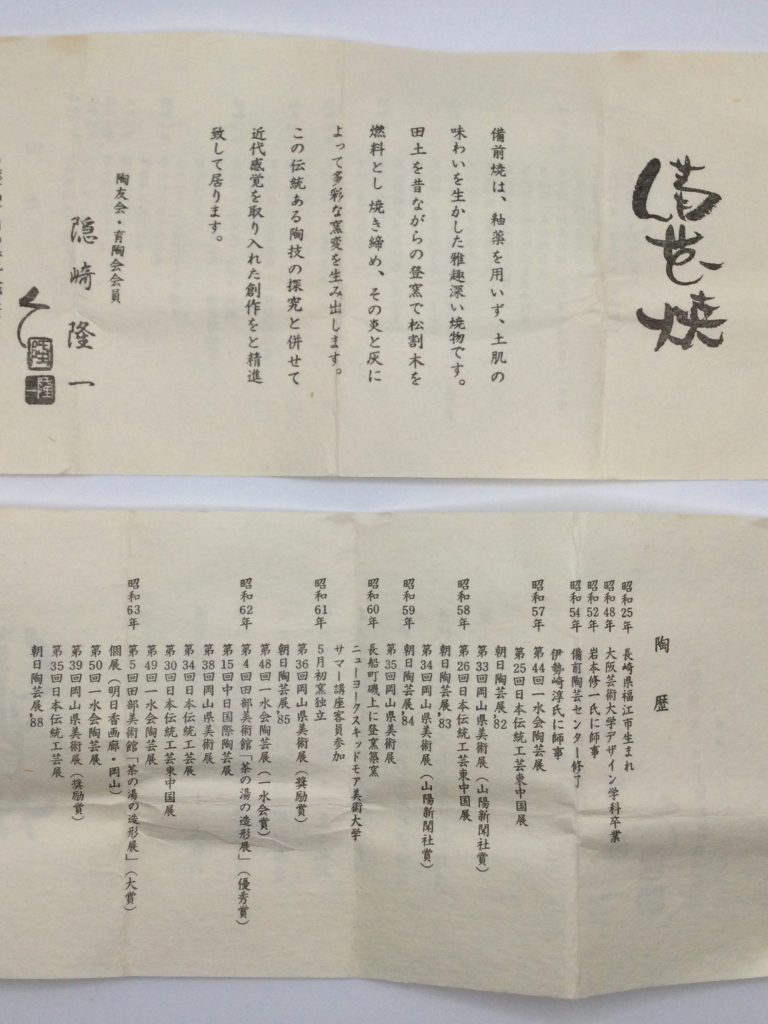 備前焼
備前焼は、釉薬を用いず、土肌の
味わいを生かした雅趣深い焼物です。
田土を昔ながらの登窯で松割木を
燃料とし 焼き締め、その炎と灰に
よって多彩な窯変を生み出します。
この伝統ある陶技の探究と併せて
近代感覚を取り入れた創作をと精進
致して居ります。
陶友会・育陶会会員
隠﨑隆一
隆
隆一
陶歴
昭和25年 長崎県福江市生まれ
昭和48年 大阪芸術大学デザイン学科卒業
昭和52年 岩本修一氏に師事
昭和54年 備前陶芸センター修了
伊勢崎淳氏に師事
昭和57年 第44回一水会陶芸展
第25回日本伝統工芸東中国展
朝日陶芸展'82
第33回岡山県美術展（山陽新聞社賞）
昭和58年 第26回日本伝統工芸東中国展
朝日陶芸展'83
第34回岡山県美術展（山陽新聞社賞）
昭和59年 朝日陶芸展'84
第35回岡山県美術展
昭和60年 長船町磯上に登窯築窯
ニューヨークスキッドモア美術大学
サマー講座客員参加
昭和61年 5月初窯独立
第36回岡山県美術展（奨励賞）
朝日陶芸展'85
第48回一水会陶芸展（一水会賞）
昭和62年 第4回田部美術館「茶の湯の造形展」（優秀賞）
第15回中日国際陶芸展
第38回岡山県美術展
第34回日本伝統工芸展
第30回日本伝統工芸東中国展
第49回一水会陶芸展
昭和63年 第5回田部美術館「茶の湯の造形展」（大賞）
個展（明日香画廊・岡山）
第50回一水会陶芸展
第39回岡山県美術展（奨励賞）
第35回日本伝統工芸展
朝日陶芸展'88